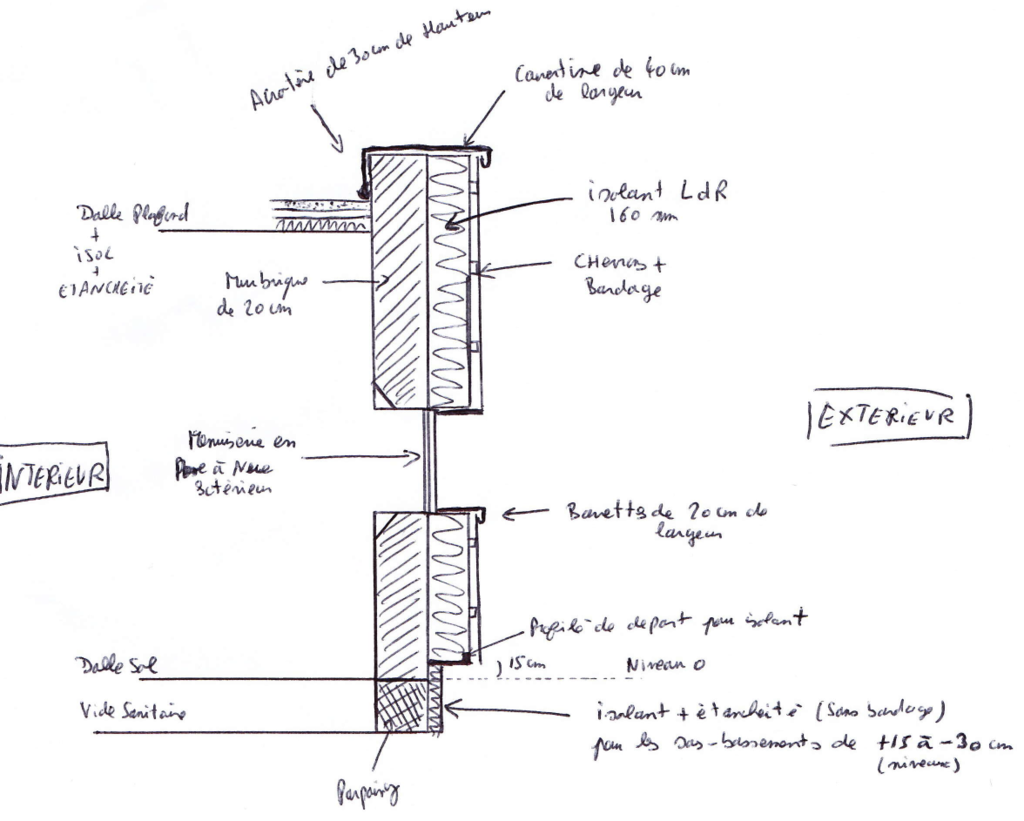 Acrotère de 30cm de Hauteur
Couvertine de 40cm
de largeur
isolant LdR
160 mm
Dalle Plafond
+
iSOL
+
ETANCHEITÉ
Mur brique
de 20cm
CHevrons +
Bardage
EXTERIEUR
INTERIEUR
Menuiserie en
Pose à Nue
Extérieur
Bavettes de 20cm de
largeur
Profilé de départ pour isolant
15cm
Niveau 0
Dalle Sol
Vide Sanitaire
isolant + étanchéité (Sans bardage)
pour les sas-bassements de +15 à -30 cm
(niveaux)
Parpaings